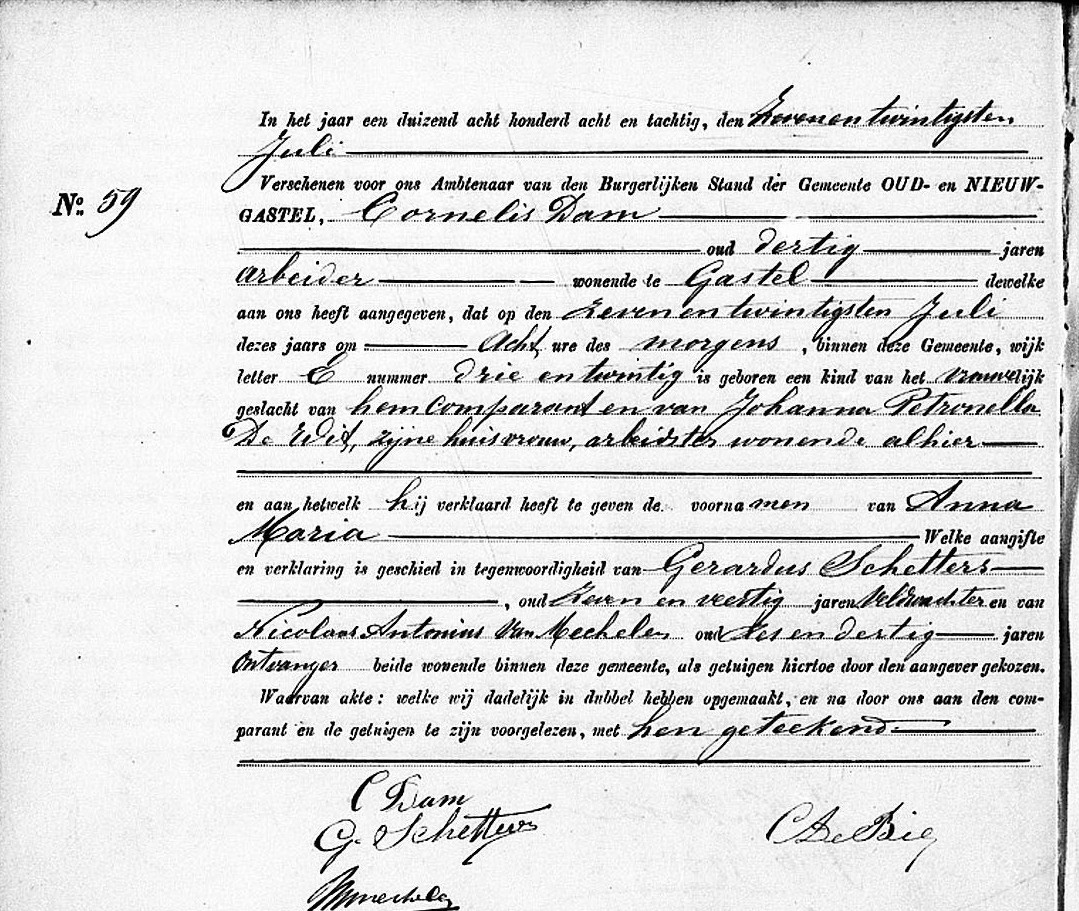 In het jaar een duizend acht honderd acht en tachtig, den Zevenentwintigsten
Juli
Verschenen voor ons Ambtenaar van den Burgerlijken Stand der Gemeente OUD- en NIEUW-
No. 59
GASTEL, Cornelis Dam
oud dertig jaren
arbeider wonende te Gastel dewelke
aan ons heeft aangegeven, dat op den zevenentwintigsten Juli
dezes jaars om Acht ure des morgens, binnen deze Gemeente, wijk
letter E nummer drie en twintig is geboren een kind van het vrouwelijk
geslacht van hem comparant en van Johanna Petronella
De Wit, zijne huisvrouw, arbeidster wonende alhier
en aan hetwelk hij verklaard heeft te geven de voornamen van Anna
Maria Welke aangifte
en verklaring is geschied in tegenwoordigheid van Gerardus Schetters
, oud Zeven en veertig jaren Veldwachter en van
Nicolaas Antonius Van Mechelen oud Zes en dertig jaren
Ontvanger beide wonende binnen deze gemeente, als getuigen hiertoe door den aangever gekozen.
Waarvan akte: welke wij dadelijk in dubbel hebben opgemaakt, en na door ons aan den com-
parant en de getuigen te zijn voorgelezen, met hen geteekend.
C Dam
G. Schetters
C De Bie